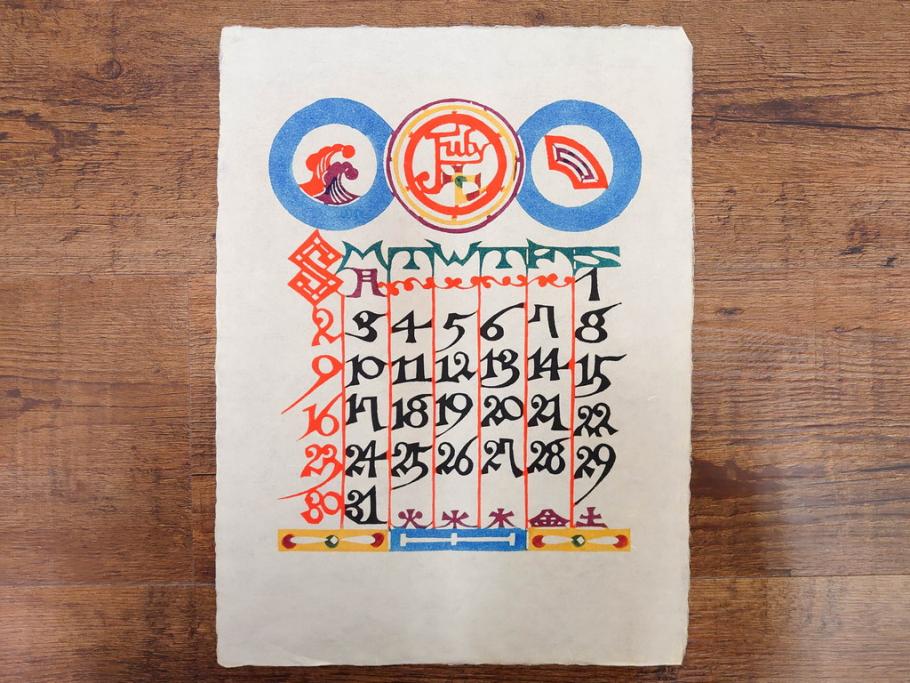 July
S M T W T F S
月 1
2 3 4 5 6 7 8
9 10 11 12 13 14 15
16 17 18 19 20 21 22
23 24 25 26 27 28 29
30 31 火 水 木 金 土